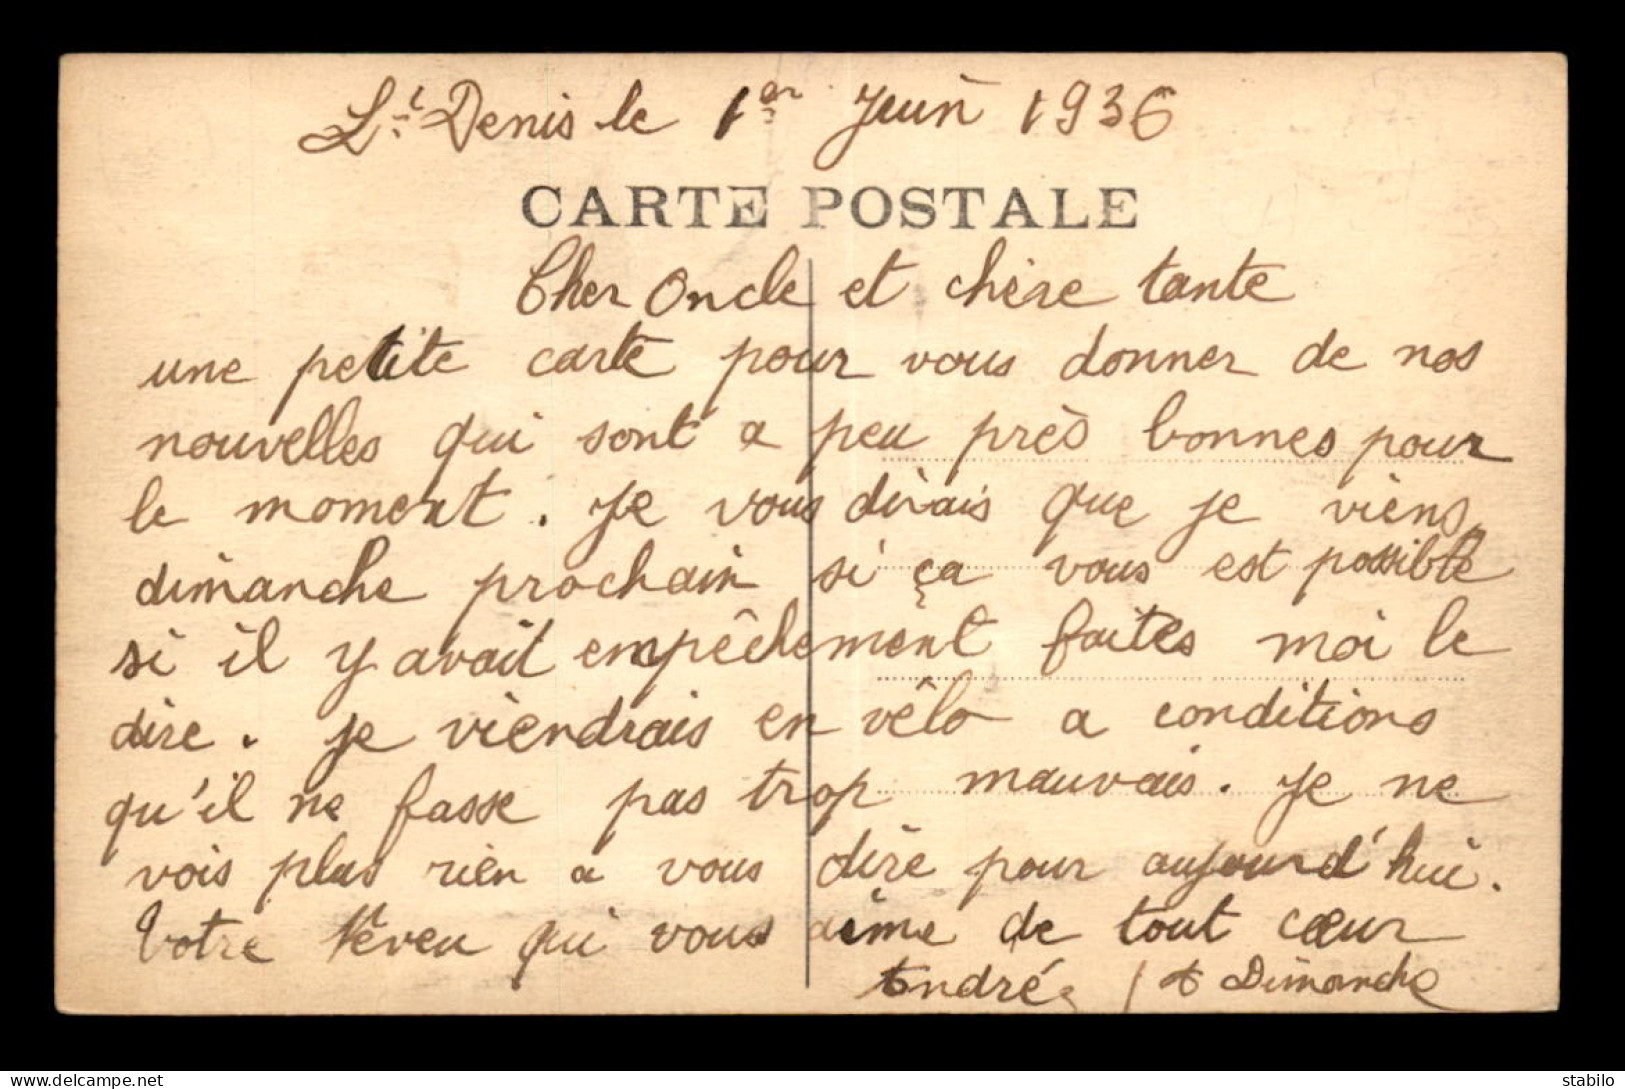 St Denis le 1er Juin 1936
CARTE POSTALE
Cher Oncle et chère tante
une petite carte pour vous donner de nos
nouvelles qui sont a peu près bonnes pour
le moment. Je vous dirais que je viens
dimanche prochain si ça vous est possible
si il y avait empêchement faites moi le
dire. Je viendrais en vélo a conditions
qu'il ne fasse pas trop mauvais. Je ne
vois plus rien a vous dire pour aujourd'hui.
Votre Neveu qui vous aime de tout cœur
André / A Dimanche
delcampe.net
stabilo